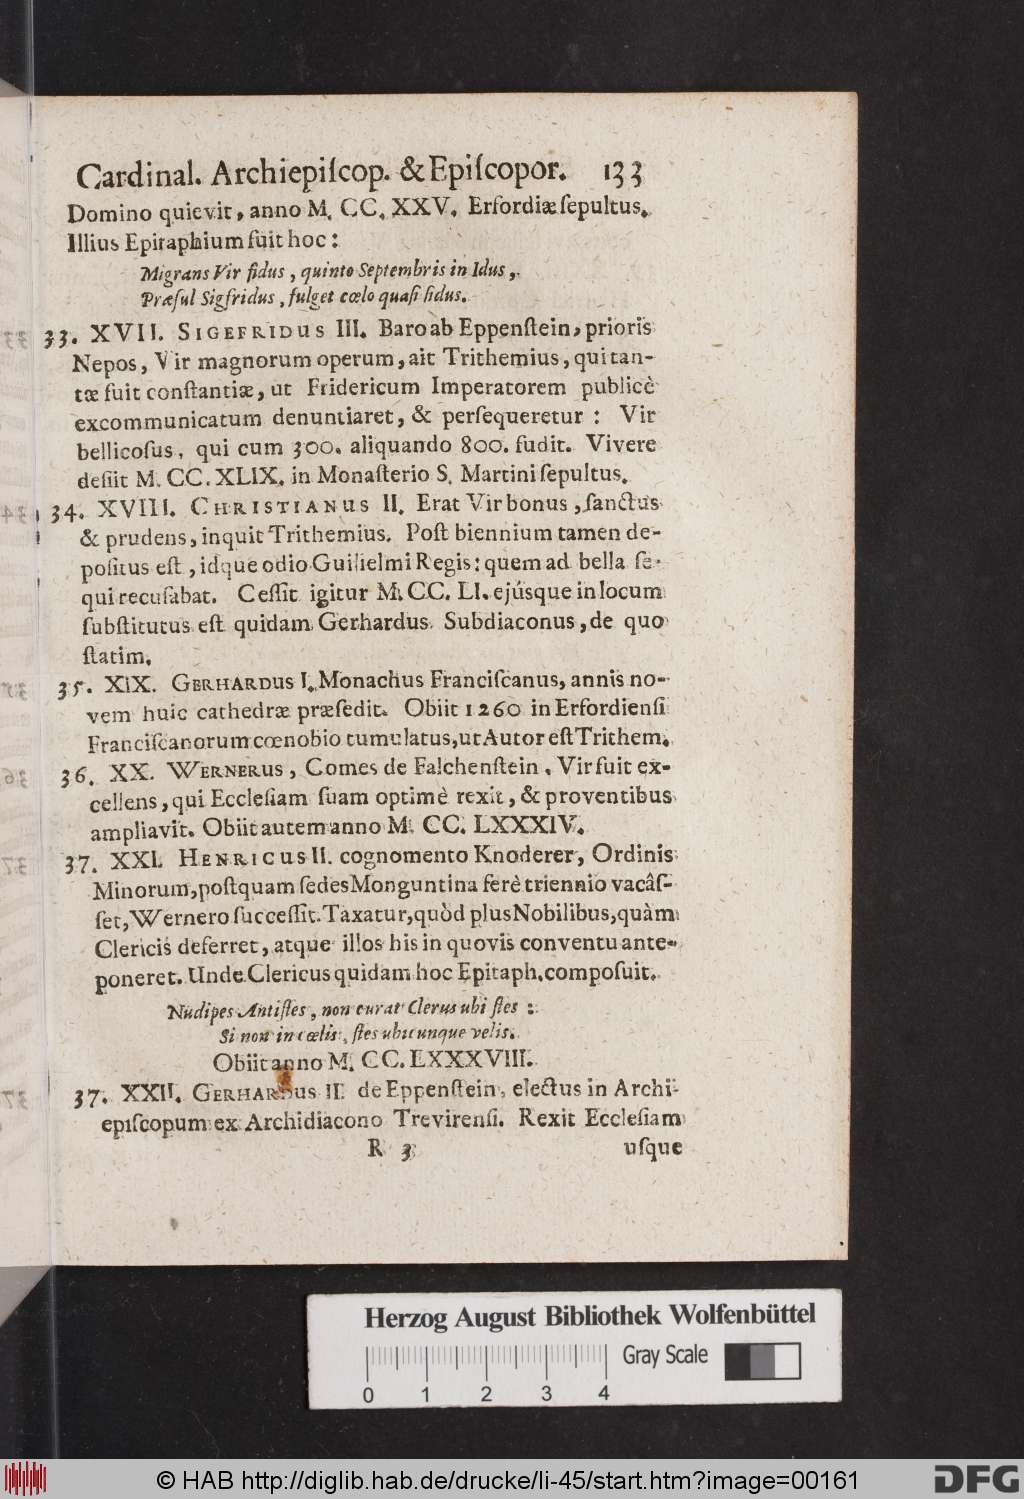 Cardinal. Archiepiſcop. & Epiſcopor. 133
Domino quievit, anno M. CC. XXV. Erfordiæ ſepultus.
Illius Epitaphium fuit hoc:
Migrans Vir fidus, quinto Septembris in Idus,
Præſul Sigfridus, fulget cœlo quaſi ſidus.
33. XVII. SIGEFRIDUS III. Baro ab Eppenſtein, prioris
Nepos, Vir magnorum operum, ait Trithemius, qui tan-
tæ fuit conſtantiæ, ut Fridericum Imperatorem publicè
excommunicatum denuntiaret, & perſequeretur: Vir
bellicoſus, qui cum 300. aliquando 800. fudit. Vivere
deſiit M. CC. XLIX. in Monaſterio S. Martini ſepultus.
34. XVIII. CHRISTIANUS II. Erat Vir bonus, ſanctus
& prudens, inquit Trithemius. Poſt biennium tamen de-
poſitus eſt, idque odio Guilielmi Regis: quem ad bella ſe-
qui recuſabat. Ceſſit igitur M. CC. LI. ejúsque in locum
ſubſtitutus eſt quidam Gerhardus Subdiaconus, de quo
ſtatim.
35. XIX. GERHARDUS I. Monachus Franciſcanus, annis no-
vem huic cathedræ præſedit. Obiit 1260 in Erfordienſi
Franciſcanorum cœnobio tumulatus, ut Autor eſt Trithem.
36. XX. WERNERUS, Comes de Falchenſtein. Vir fuit ex-
cellens, qui Eccleſiam ſuam optimè rexit, & proventibus
ampliavit. Obiit autem anno M. CC. LXXXIV.
37. XXI. HENRICUS II. cognomento Knoderer, Ordinis
Minorum, poſtquam ſedes Monguntina ferè triennio vacâſ-
ſet, Wernero ſucceſſit. Taxatur, quòd plus Nobilibus, quàm
Clericis deferret, atque illos his in quovis conventu ante-
poneret. Unde Clericus quidam hoc Epitaph. compoſuit.
Nudipes Antiſtes, non curat Clerus ubi ſtes:
Si non in cœlis, ſtes ubicunque velis.
Obiit anno M. CC. LXXXVIII.
37. XXII. GERHARDUS II. de Eppenſtein, electus in Archi-
epiſcopum ex Archidiacono Trevirenſi. Rexit Eccleſiam
R 3 uſque
Herzog August Bibliothek Wolfenbüttel
Gray Scale
0 1 2 3 4
© HAB http://diglib.hab.de/drucke/li-45/start.htm?image=00161
DFG